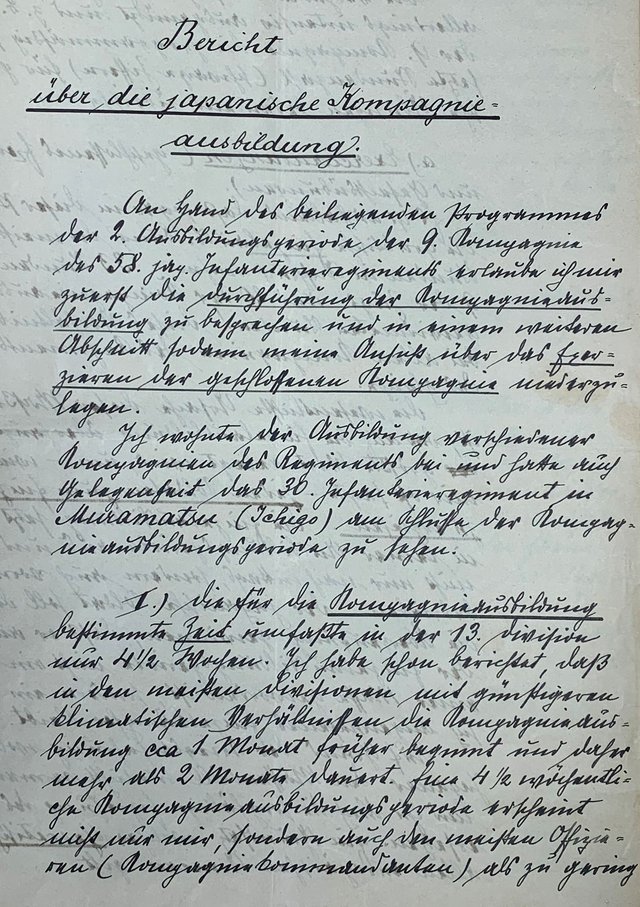 Bericht
über die japanische Kompagnie-
ausbildung.
An Hand des beiliegenden Programmes
der 2. Ausbildungsperiode der 9. Kompagnie
des 58. jap. Infanterieregiments erlaube ich mir
zuerst die Durchführung der Kompagnieaus-
bildung zu besprechen und in einem weiteren
Abschnitt sodann meine Ansicht über das Exer-
zieren der geschlossenen Kompagnie niederzu-
legen.
Ich wohnte der Ausbildung verschiedener
Kompagnien des Regiments bei und hatte auch
Gelegenheit das 30. Infanterieregiment in
Muramatsu (Ichigo) am Schlusse der Kompag-
nieausbildungsperiode zu sehen.
I.) Die für die Kompagnieausbildung
bestimmte Zeit umfaßte in der 13. Division
nur 4 1/2 Wochen. Ich habe schon berichtet, daß
in den meisten Divisionen mit günstigeren
klimatischen Verhältnissen die Kompagnieaus-
bildung cca 1 Monat früher beginnt und daher
mehr als 2 Monate dauert. Eine 4 1/2 wöchentli-
che Kompagnieausbildungsperiode erscheint
nicht nur mir, sondern auch den meisten Offizie-
ren (Kompagniekommandanten) als zu gering